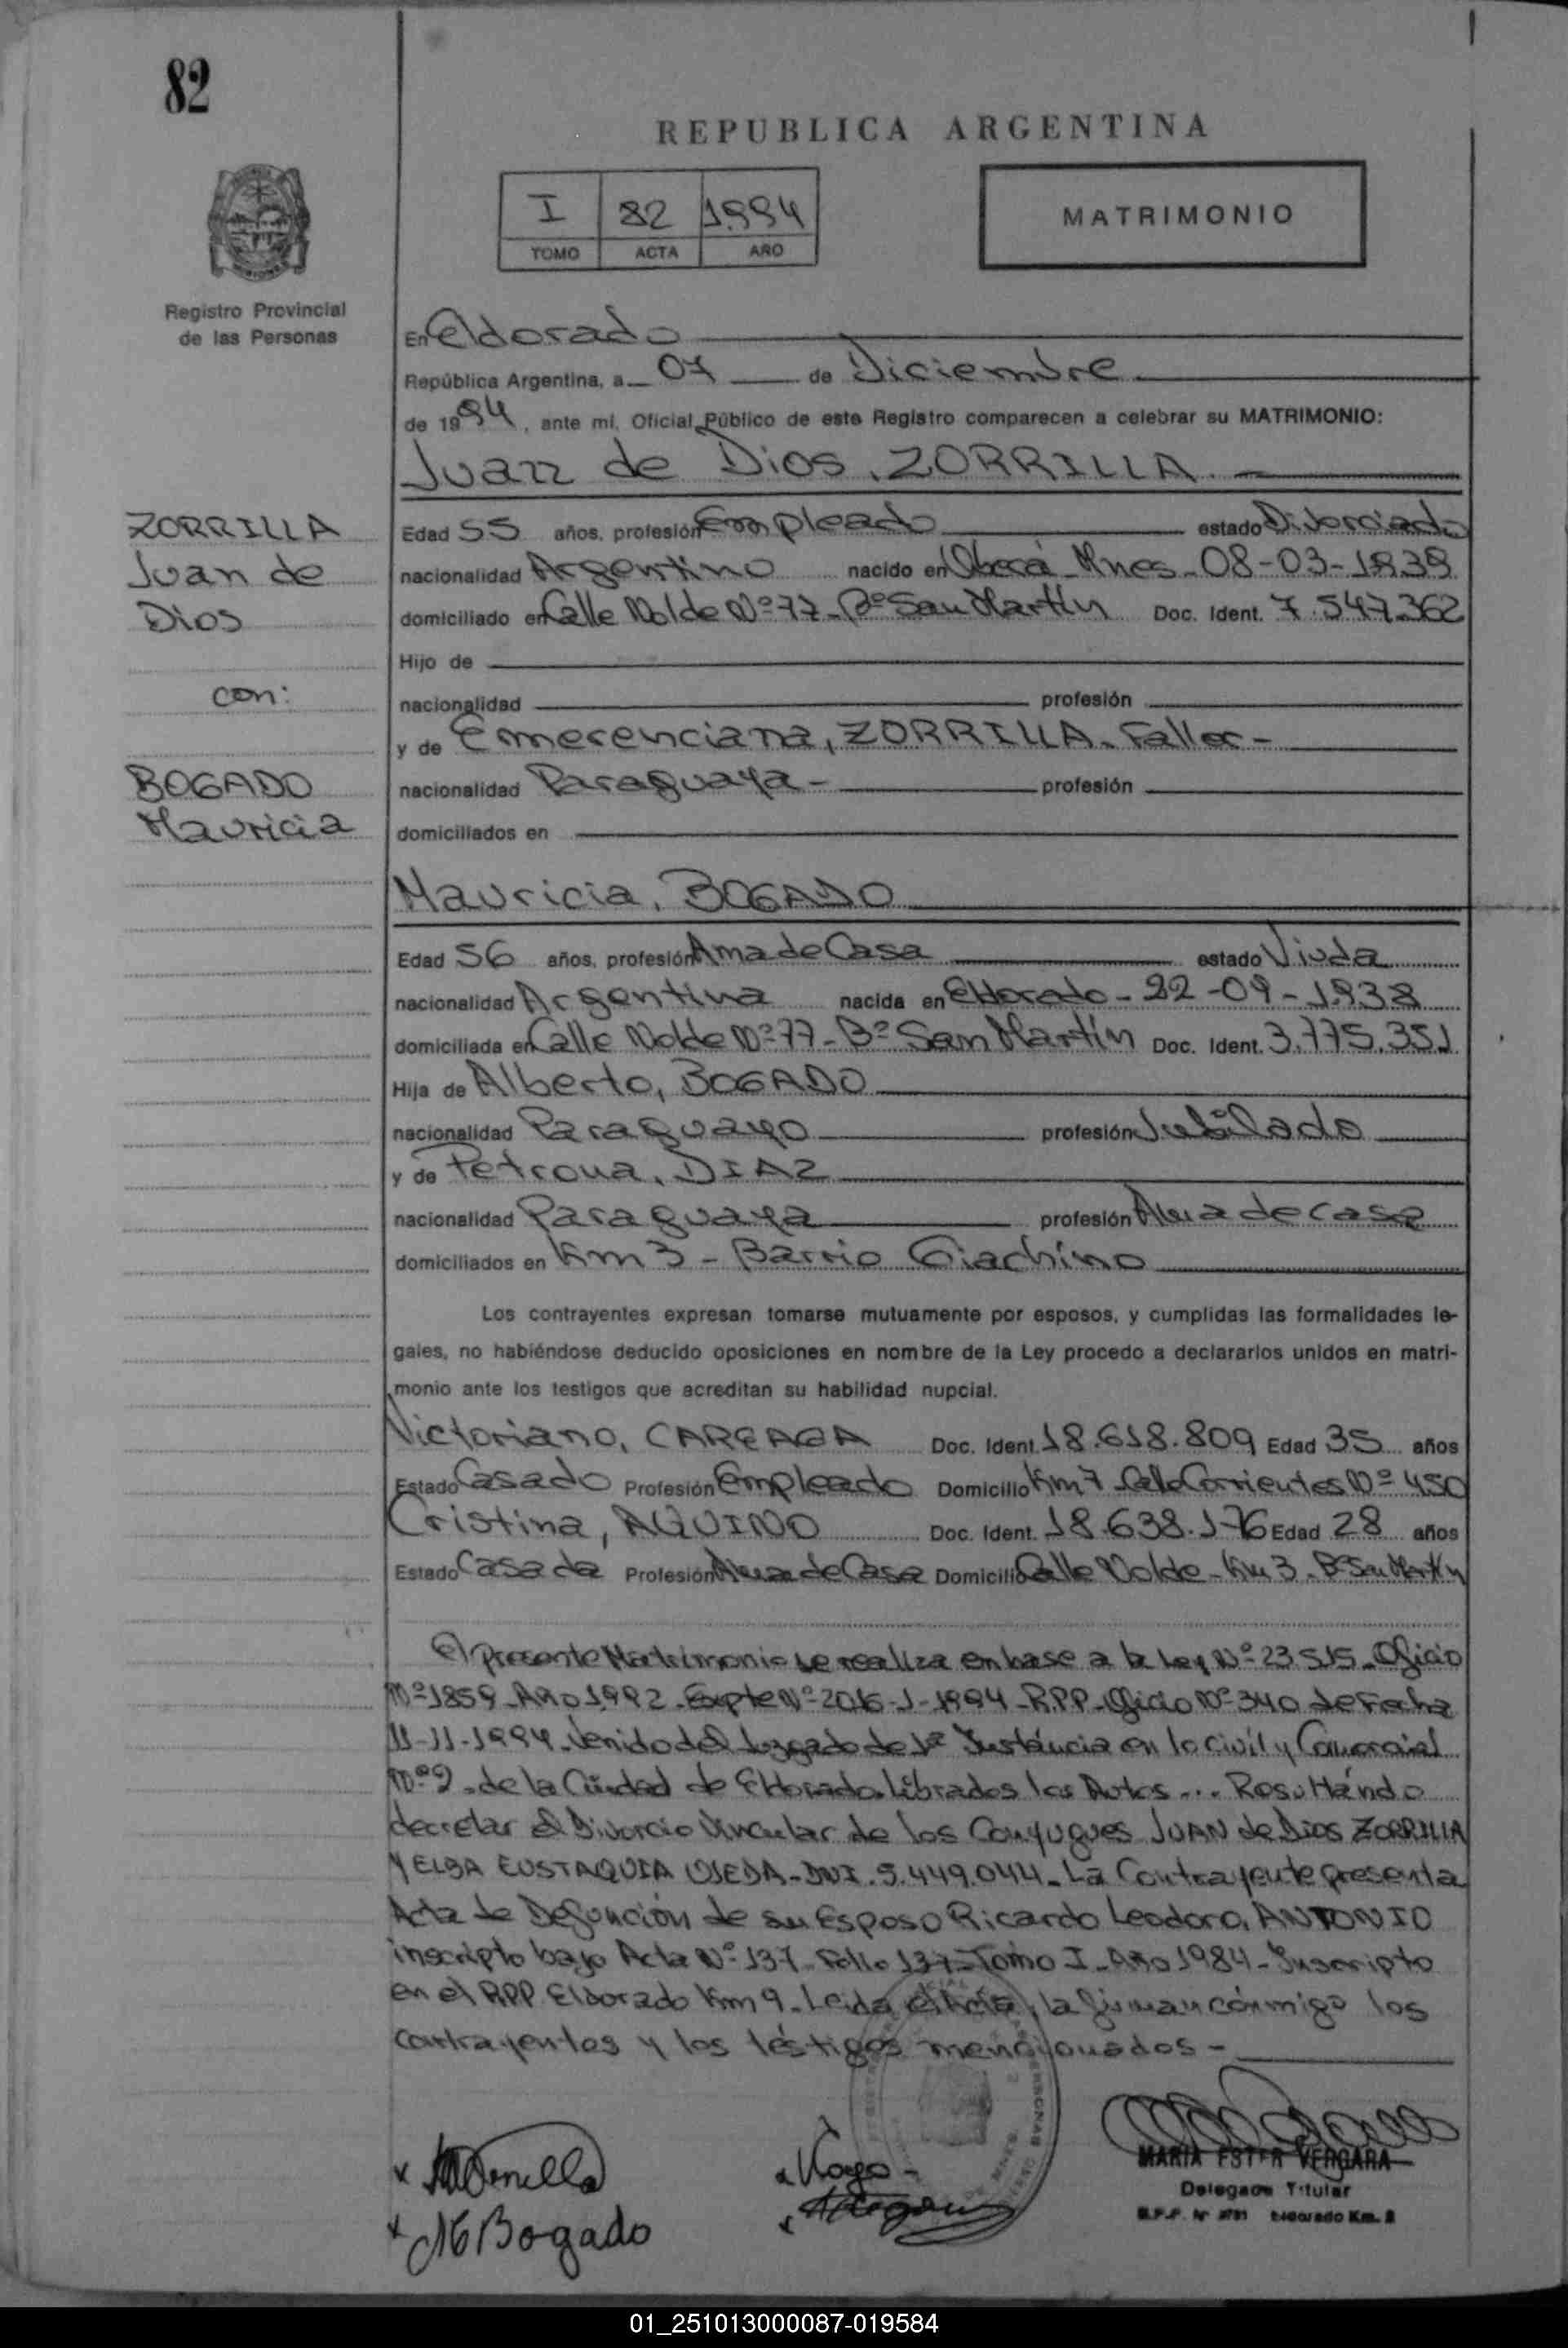 82
REPUBLICA ARGENTINA
I 82 1994
TOMO ACTA AÑO
MATRIMONIO
Registro Provincial
de las Personas
En Eldorado
República Argentina, a 07 de Diciembre
de 1994, ante mí, Oficial Público de este Registro comparecen a celebrar su MATRIMONIO:
Juan de Dios, ZORRILLA.
ZORRILLA
Juan de
Dios
con:
BOGADO
Mauricia
Edad 55 años, profesión Empleado estado Divorciado
nacionalidad Argentino nacido en Oberá Mnes - 08-03-1939
domiciliado en Calle Nolde Nº 77 - Bº San Martín Doc. Ident. 7.547.362
Hijo de
nacionalidad profesión
y de Emerenciana, ZORRILLA - Fallec -
nacionalidad Paraguaya - profesión
domiciliados en
Mauricia, BOGADO
Edad 56 años, profesión Ama de Casa estado Viuda
nacionalidad Argentina nacida en Eldorado - 22-09-1938
domiciliada en Calle Nolde Nº 77 - Bº San Martín Doc. Ident. 3.775.351
Hija de Alberto, BOGADO
nacionalidad Paraguayo profesión Jubilado
y de Petrona, DIAZ
nacionalidad Paraguaya profesión Ama de casa
domiciliados en Km 3 - Barrio Giachino
Los contrayentes expresan tomarse mutuamente por esposos, y cumplidas las formalidades le-
gales, no habiéndose deducido oposiciones en nombre de la Ley procedo a declararlos unidos en matri-
monio ante los testigos que acreditan su habilidad nupcial.
Victoriano, CAREAGA Doc. Ident. 18.618.809 Edad 35 años
Estado Casado Profesión Empleado Domicilio Km 7 Calle Corrientes Nº 450
Cristina, AQUINO Doc. Ident. 18.638.176 Edad 28 años
Estado Casada Profesión Ama de Casa Domicilio Calle Nolde - Km 3 - Bº San Martín
El presente Matrimonio se realiza en base a la Ley Nº 23.515 - Oficio
Nº 1859 - Año 1992 - Expte Nº 2016-1-1994 - R.P.P - Oficio Nº 340 de Fecha
11-11-1994 - Venido del Juzgado de 1ª Instáncia en lo civil y Comercial
Nº 2 - de la Ciudad de Eldorado. Librados los Autos ... Resultándo
decretar el Divorcio Vincular de los Conyugues JUAN de Dios ZORRILLA
Y ELBA EUSTAQUIA OJEDA - DNI. 5.449.044 - La Contrayente presenta
Acta de Defunción de su Esposo Ricardo Leodoro, ANTONIO
inscripto bajo Acta Nº 137 - Folio 137 - Tomo I - Año 1984 - Inscripto
en el RPP Eldorado Km 9 - Leida el Acta, la firman cónmigo los
contrayentes y los téstigos mencionados -
MARIA ESTER VERGARA
Delegada Titular
Eldorado Km.
M Bogado
01_251013000087-019584